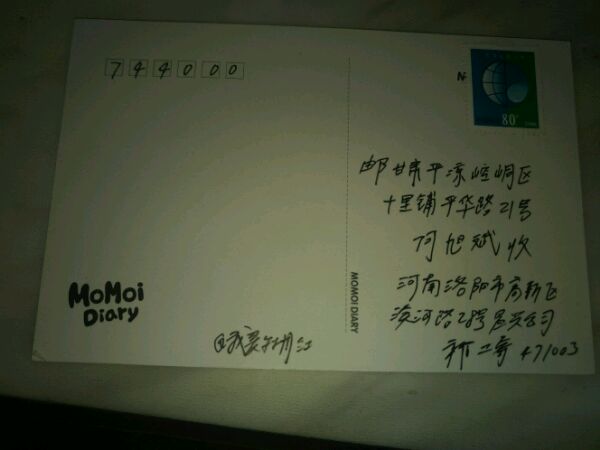 744000
80
邮 甘肃平凉崆峒区
十里铺平华路21号
何旭斌收
河南洛阳市高新区
路28号 公司
471003
MoMoi
Diary
MOMOI DIARY
@我爱